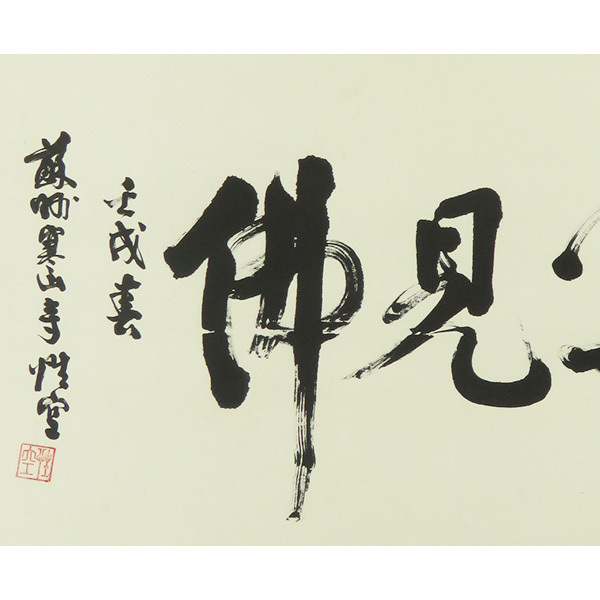 見佛
壬戌春
蘇州寒山寺性空
性空